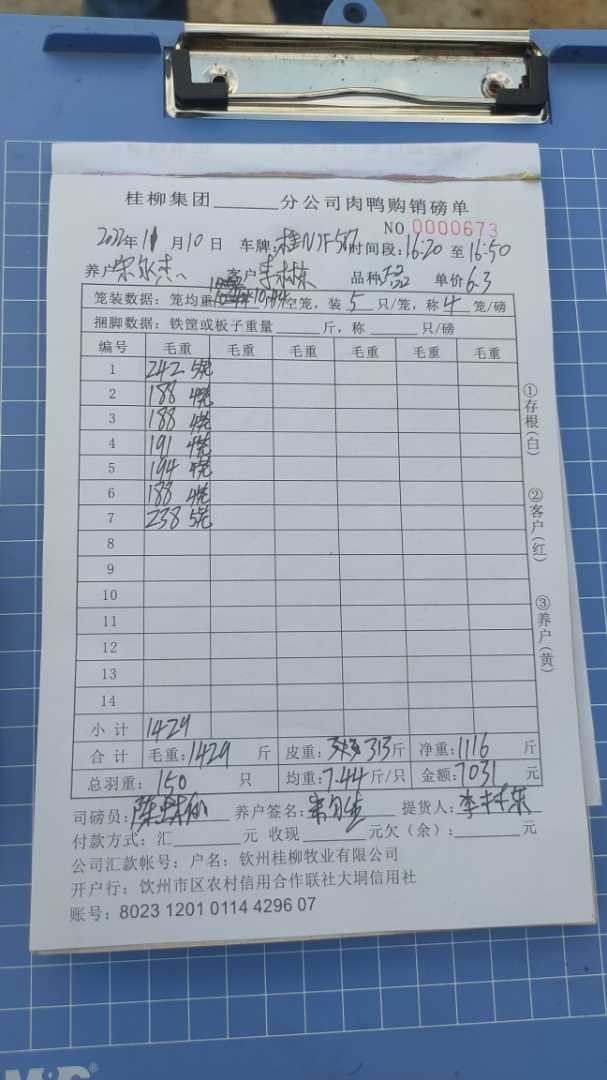 桂柳集团______分公司肉鸭购销磅单
NO 0000673
2022年11月10日 车牌: 时间段:16:20 至 16:50
养户 客户 李林东 品种 单价 6.3
笼装数据: 笼均重 空笼, 装 5 只/笼, 称 4 笼/磅
捆脚数据: 铁筐或板子重量______斤, 称______只/磅
编号 毛重 毛重 毛重 毛重 毛重 毛重
1 242 5笼
2 188 4笼
3 188 4笼
4 191 4笼
5 194 4笼
6 188 4笼
7 238 5笼
8
9
10
11
12
13
14
小计 1429
合计 毛重:1429 斤 皮重: 313斤 净重:1116 斤
总羽重: 150 只 均重:7.44斤/只 金额:7031 元
司磅员: 养户签名: 提货人:李林东
付款方式: 汇______元 收现______元欠(余):______元
公司汇款帐号: 户名: 钦州桂柳牧业有限公司
开户行: 饮州市区农村信用合作联社大垌信用社
账号: 8023 1201 0114 4296 07
①存根(白)
②客户(红)
③养户(黄)
M&G